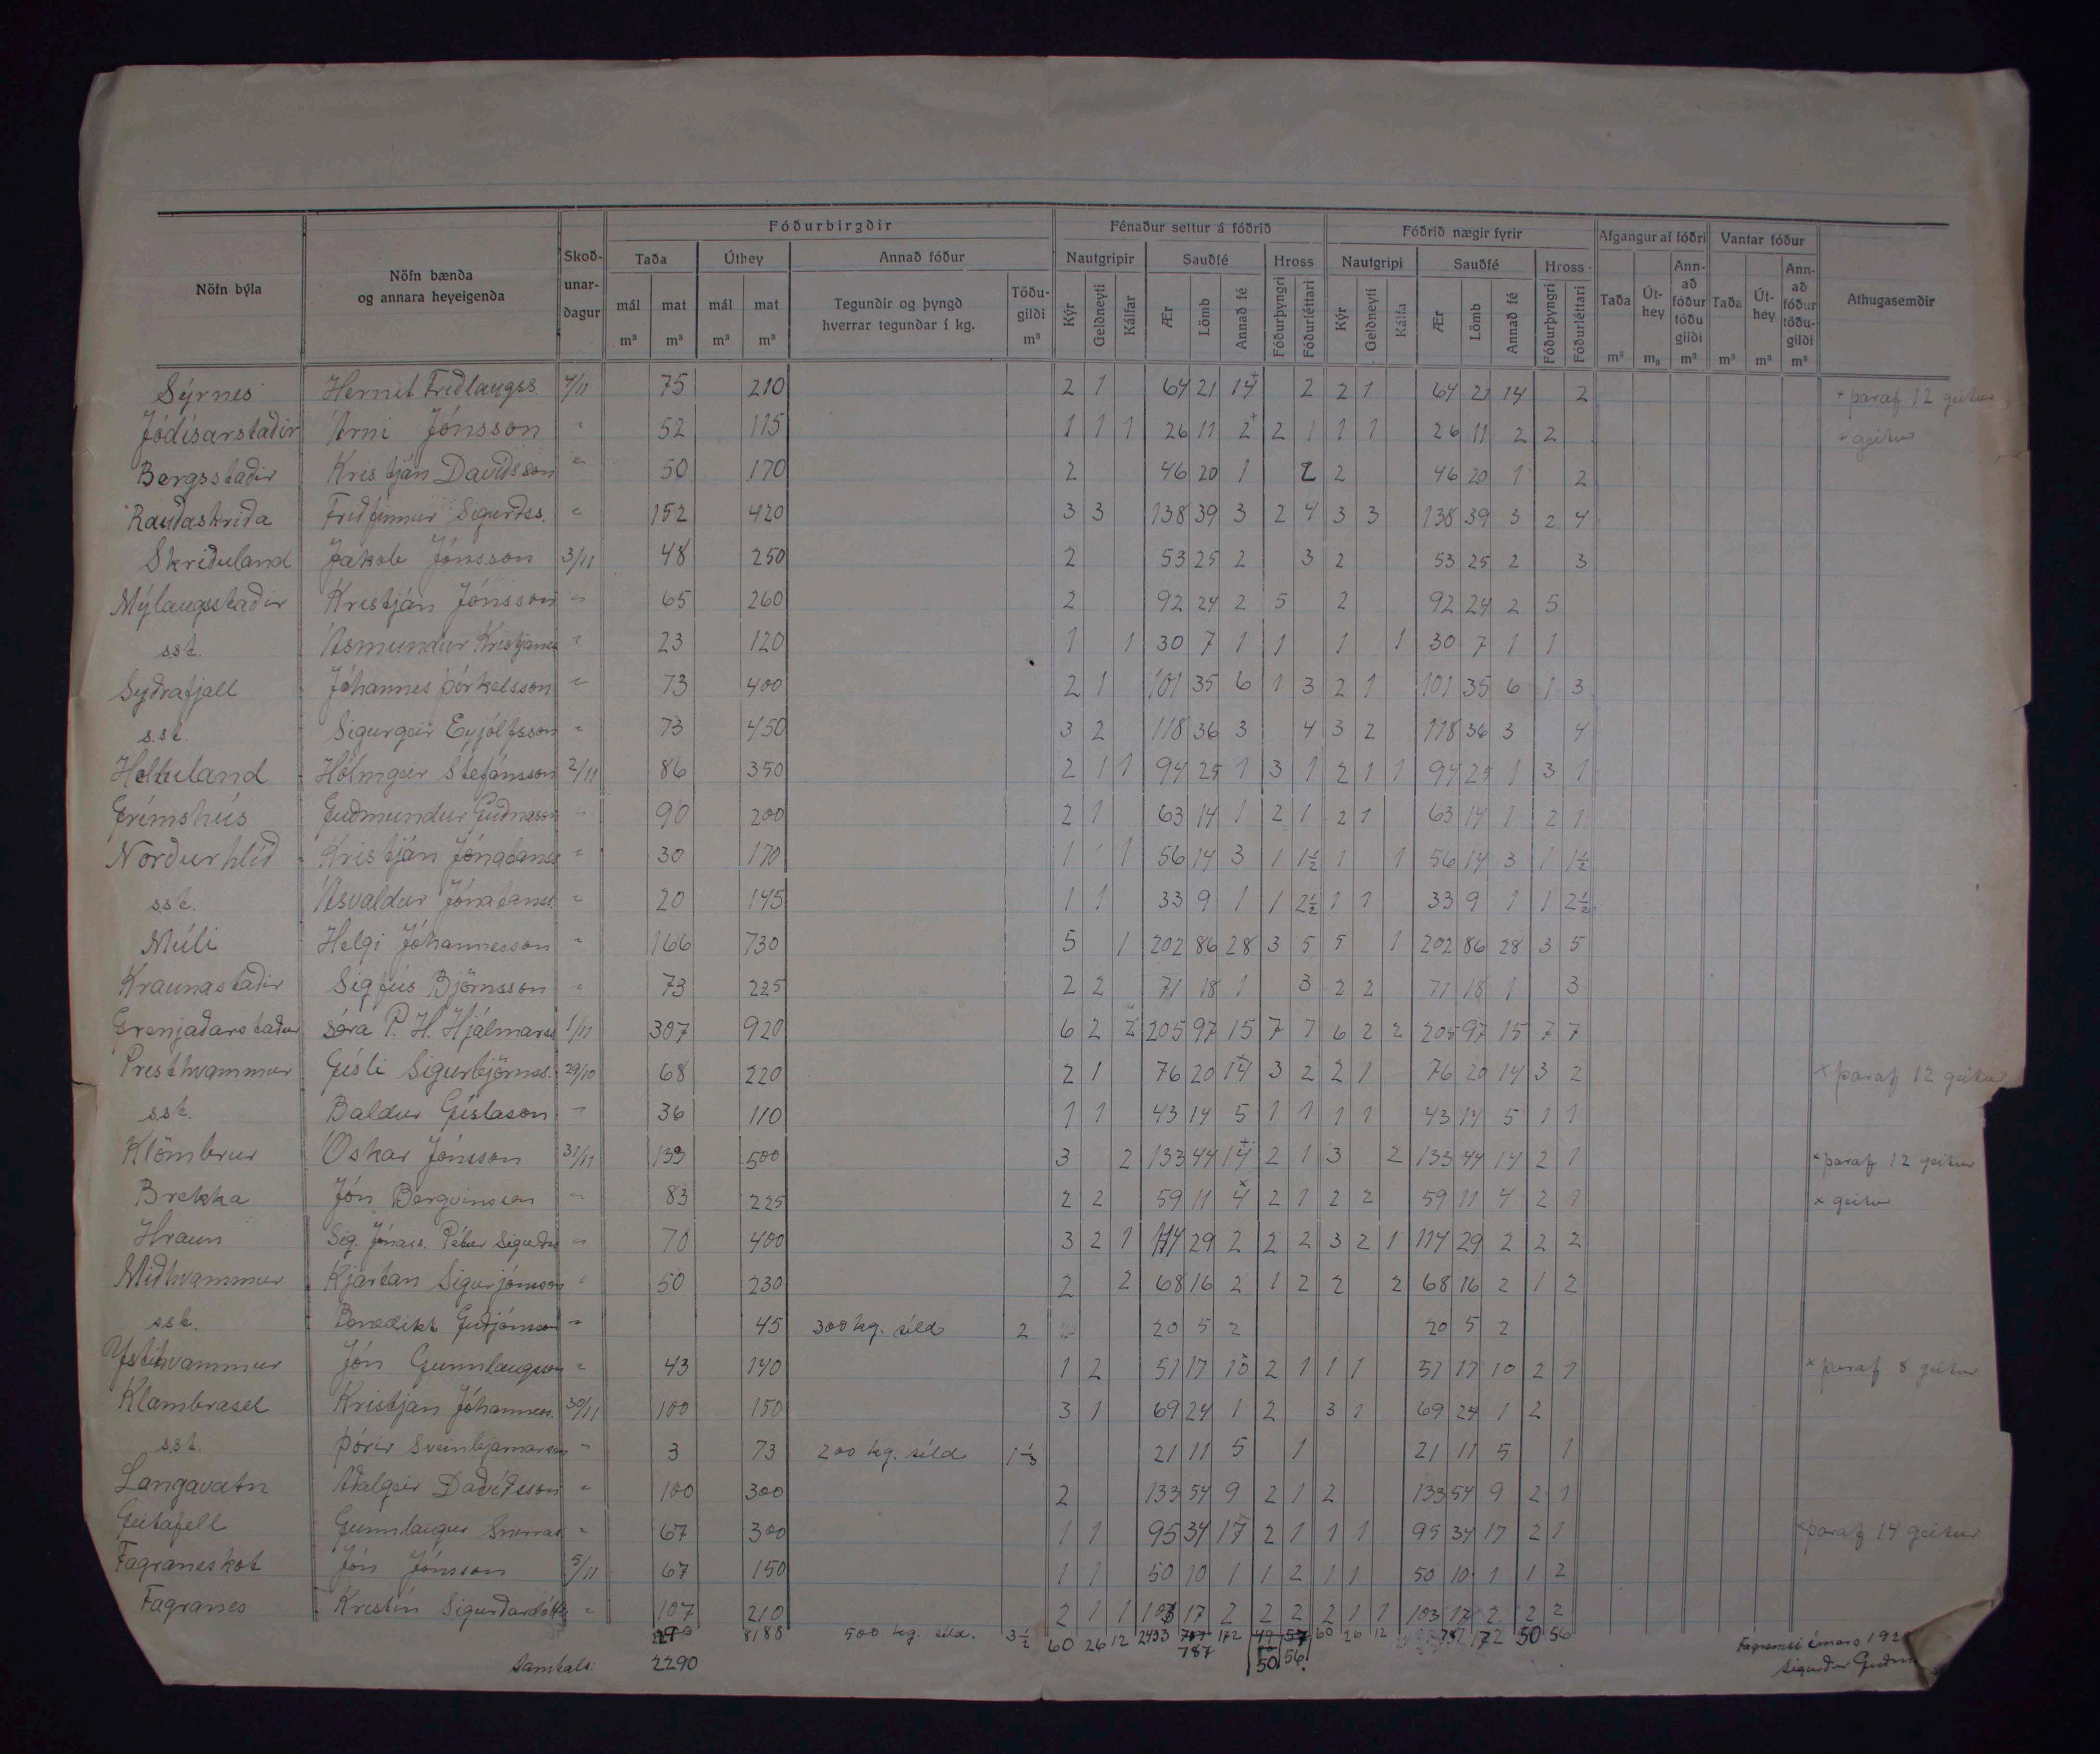 Fóðurbirgðir Fénaður settur á fóðrið Fóðrið nægir fyrir Afgangur af fóðri Vantar fóður
Nöfn býla Nöfn bænda og annara heyeigenda Skoð-unar-dagur Taða Úthey Annað fóður Nautgripir Sauðfé Hross Nautgripi Sauðfé Hross Athugasemdir
mál m³ mat m³ mál m³ mat m³ Tegundir og þyngd hverrar tegundar í kg. Töðu-gildi m³ Kýr Geldneyti Kálfar Ær Lömb Annað fé Fóðurþyngri Fóðurléttari Kýr Geldneyti Kálfa Ær Lömb Annað fé Fóðurþyngri Fóðurléttari Taða m³ Út-hey m₃ Ann-að fóður töðu gildi m³ Taða m³ Út-hey m³ Ann-að fóður töðu-gildi m³
Sýrnes Hernit Friðlaugss. 4/11 75 210 2 1 64 21 14+ 2 2 1 64 21 14 2 + þaraf 12 geitur
Jódísarstaðir Árni Jónsson " 52 115 1 1 1 26 11 2+ 2 1 1 1 26 11 2 2 + geitur
Bergsstaðir Kristján Davíðsson " 50 170 2 46 20 1 2 2 46 20 1 2
Rauðaskriða Friðfinnur Sigurðss. " 152 420 3 3 138 39 3 2 4 3 3 138 39 3 2 4
Skriðuland Jakob Jónsson 3/11 48 250 2 53 25 2 3 2 53 25 2 3
Mýlaugsstaðir Kristján Jónsson " 65 260 2 92 24 2 5 2 92 24 2 5
s.st. Ásmundur Kristjánss " 23 120 1 1 30 7 1 1 1 1 30 7 1 1
Syðrafjall Jóhannes Þorkelsson " 73 400 2 1 101 35 6 1 3 2 1 101 35 6 1 3
s.st. Sigurgeir Eyjólfsson " 73 450 3 2 118 36 3 4 3 2 118 36 3 4
Helluland Hólmgeir Stefánsson 2/11 86 350 2 1 1 94 25 1 3 1 2 1 1 94 25 1 3 1
Grímshús Guðmundur Guðnason " 90 200 2 1 63 14 1 2 1 2 1 63 14 1 2 1
Norðurhlíð Kristján Jónatanss " 30 170 1 1 56 14 3 1 1½ 1 1 56 14 3 1 1½
s.st. Ásvaldur Jónatanss. " 20 145 1 1 33 9 1 1 2½ 1 1 33 9 1 1 2½
Múli Helgi Jóhannesson " 166 730 5 1 202 86 28 3 5 5 1 202 86 28 3 5
Kraunastaðir Sigfús Björnsson " 73 225 2 2 71 18 1 3 2 2 71 18 1 3
Grenjaðarstaður Séra P. H. Hjálmarss 1/11 307 920 6 2 2 205 97 15 7 7 6 2 2 205 97 15 7 7
Presthvammur Gísli Sigurbjörnss. 29/10 68 220 2 1 76 20 14+ 3 2 2 1 76 20 14 3 2 + þaraf 12 geitur
s.st. Baldur Gíslason " 36 110 1 1 43 14 5 1 1 1 1 43 14 5 1 1
Klömbrur Óskar Jónsson 31/11 139 500 3 2 133 44 14+ 2 1 3 2 133 44 14 2 1 + þaraf 12 geitur
Brekka Jón Bergvinsson " 83 225 2 2 59 11 4x 2 1 2 2 59 11 4 2 1 x geitur
Hraun Sig. Jónass. Pétur Sigurðss " 70 400 3 2 1 114 29 2 2 2 3 2 1 114 29 2 2 2
Miðhvammur Kjartan Sigurjónsson " 50 230 2 2 68 16 2 1 2 2 2 68 16 2 1 2
s.st. Benedikt Guðjónsson " 45 300 kg. síld 2 20 5 2 20 5 2
Ystihvammur Jón Gunnlaugsson " 43 140 1 2 51 17 10x 2 1 1 1 51 17 10 2 1 x þaraf 8 geitur
Klambrasel Kristján Jóhanness. 30/11 100 150 3 1 69 24 1 2 3 1 69 24 1 2
s.st. Þórir Sveinbjarnarson " 3 73 200 kg. síld 1⅓ 21 11 5 1 21 11 5 1
Langavatn Aðalgeir Davíðsson " 100 300 2 133 54 9 2 1 2 133 54 9 2 1
Geitafell Gunnlaugur Snorras " 67 300 1 1 95 34 17x 2 1 1 1 95 34 17 2 1 x þaraf 14 geitur
Fagraneskot Jón Jónsson 5/11 67 150 1 1 50 10 1 1 2 1 1 50 10 1 1 2
Fagranes Kristín Sigurðardóttir " 107 210 2 1 1 103 17 2 2 2 2 1 1 103 17 2 2 2
8188 500 kg. síld. 3½ 60 26 12 2433 172 49 57 60 26 12 172 50 56
Samtals: 2290 787 50 56
Fagranesi í mars 192
Sigurður Guðm